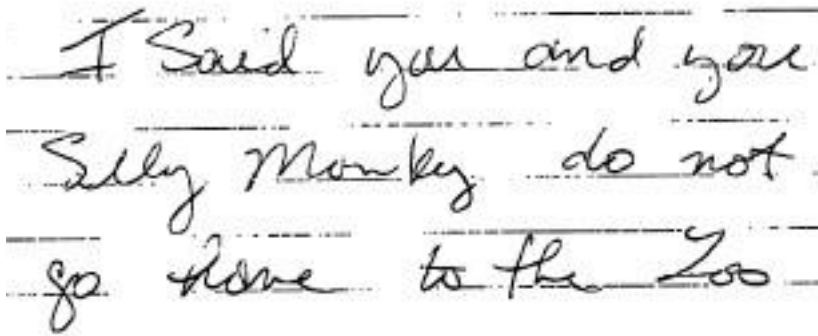 I Said you and you
Silly Monky do not
go home to the Zoo